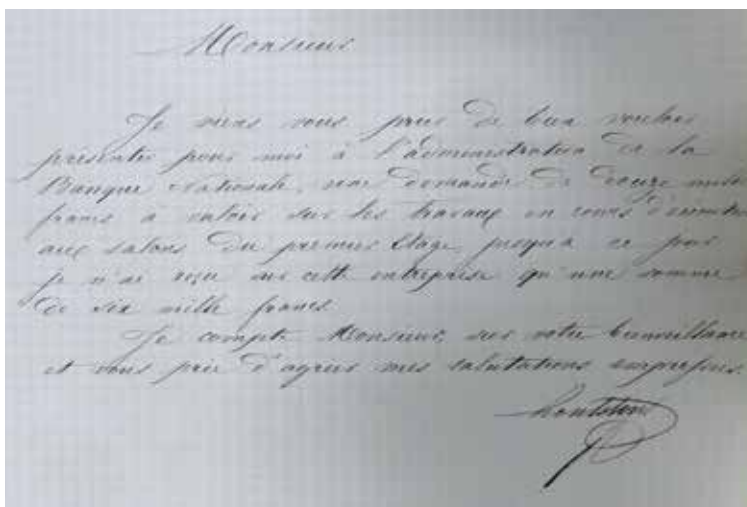 Monsieur
Je viens vous prier de bien vouloir
présenter pour moi à l'administration de la
Banque Nationale, une demande de douze mille
francs à valoir sur les travaux en cours d'exécution
aux salons du premier Etage, jusqu'à ce jour
je n'ai reçu sur cette entreprise qu'une somme
de six mille francs.
Je compte Monsieur, sur votre bienveillance
et vous prie d'agréer mes salutations empressées.